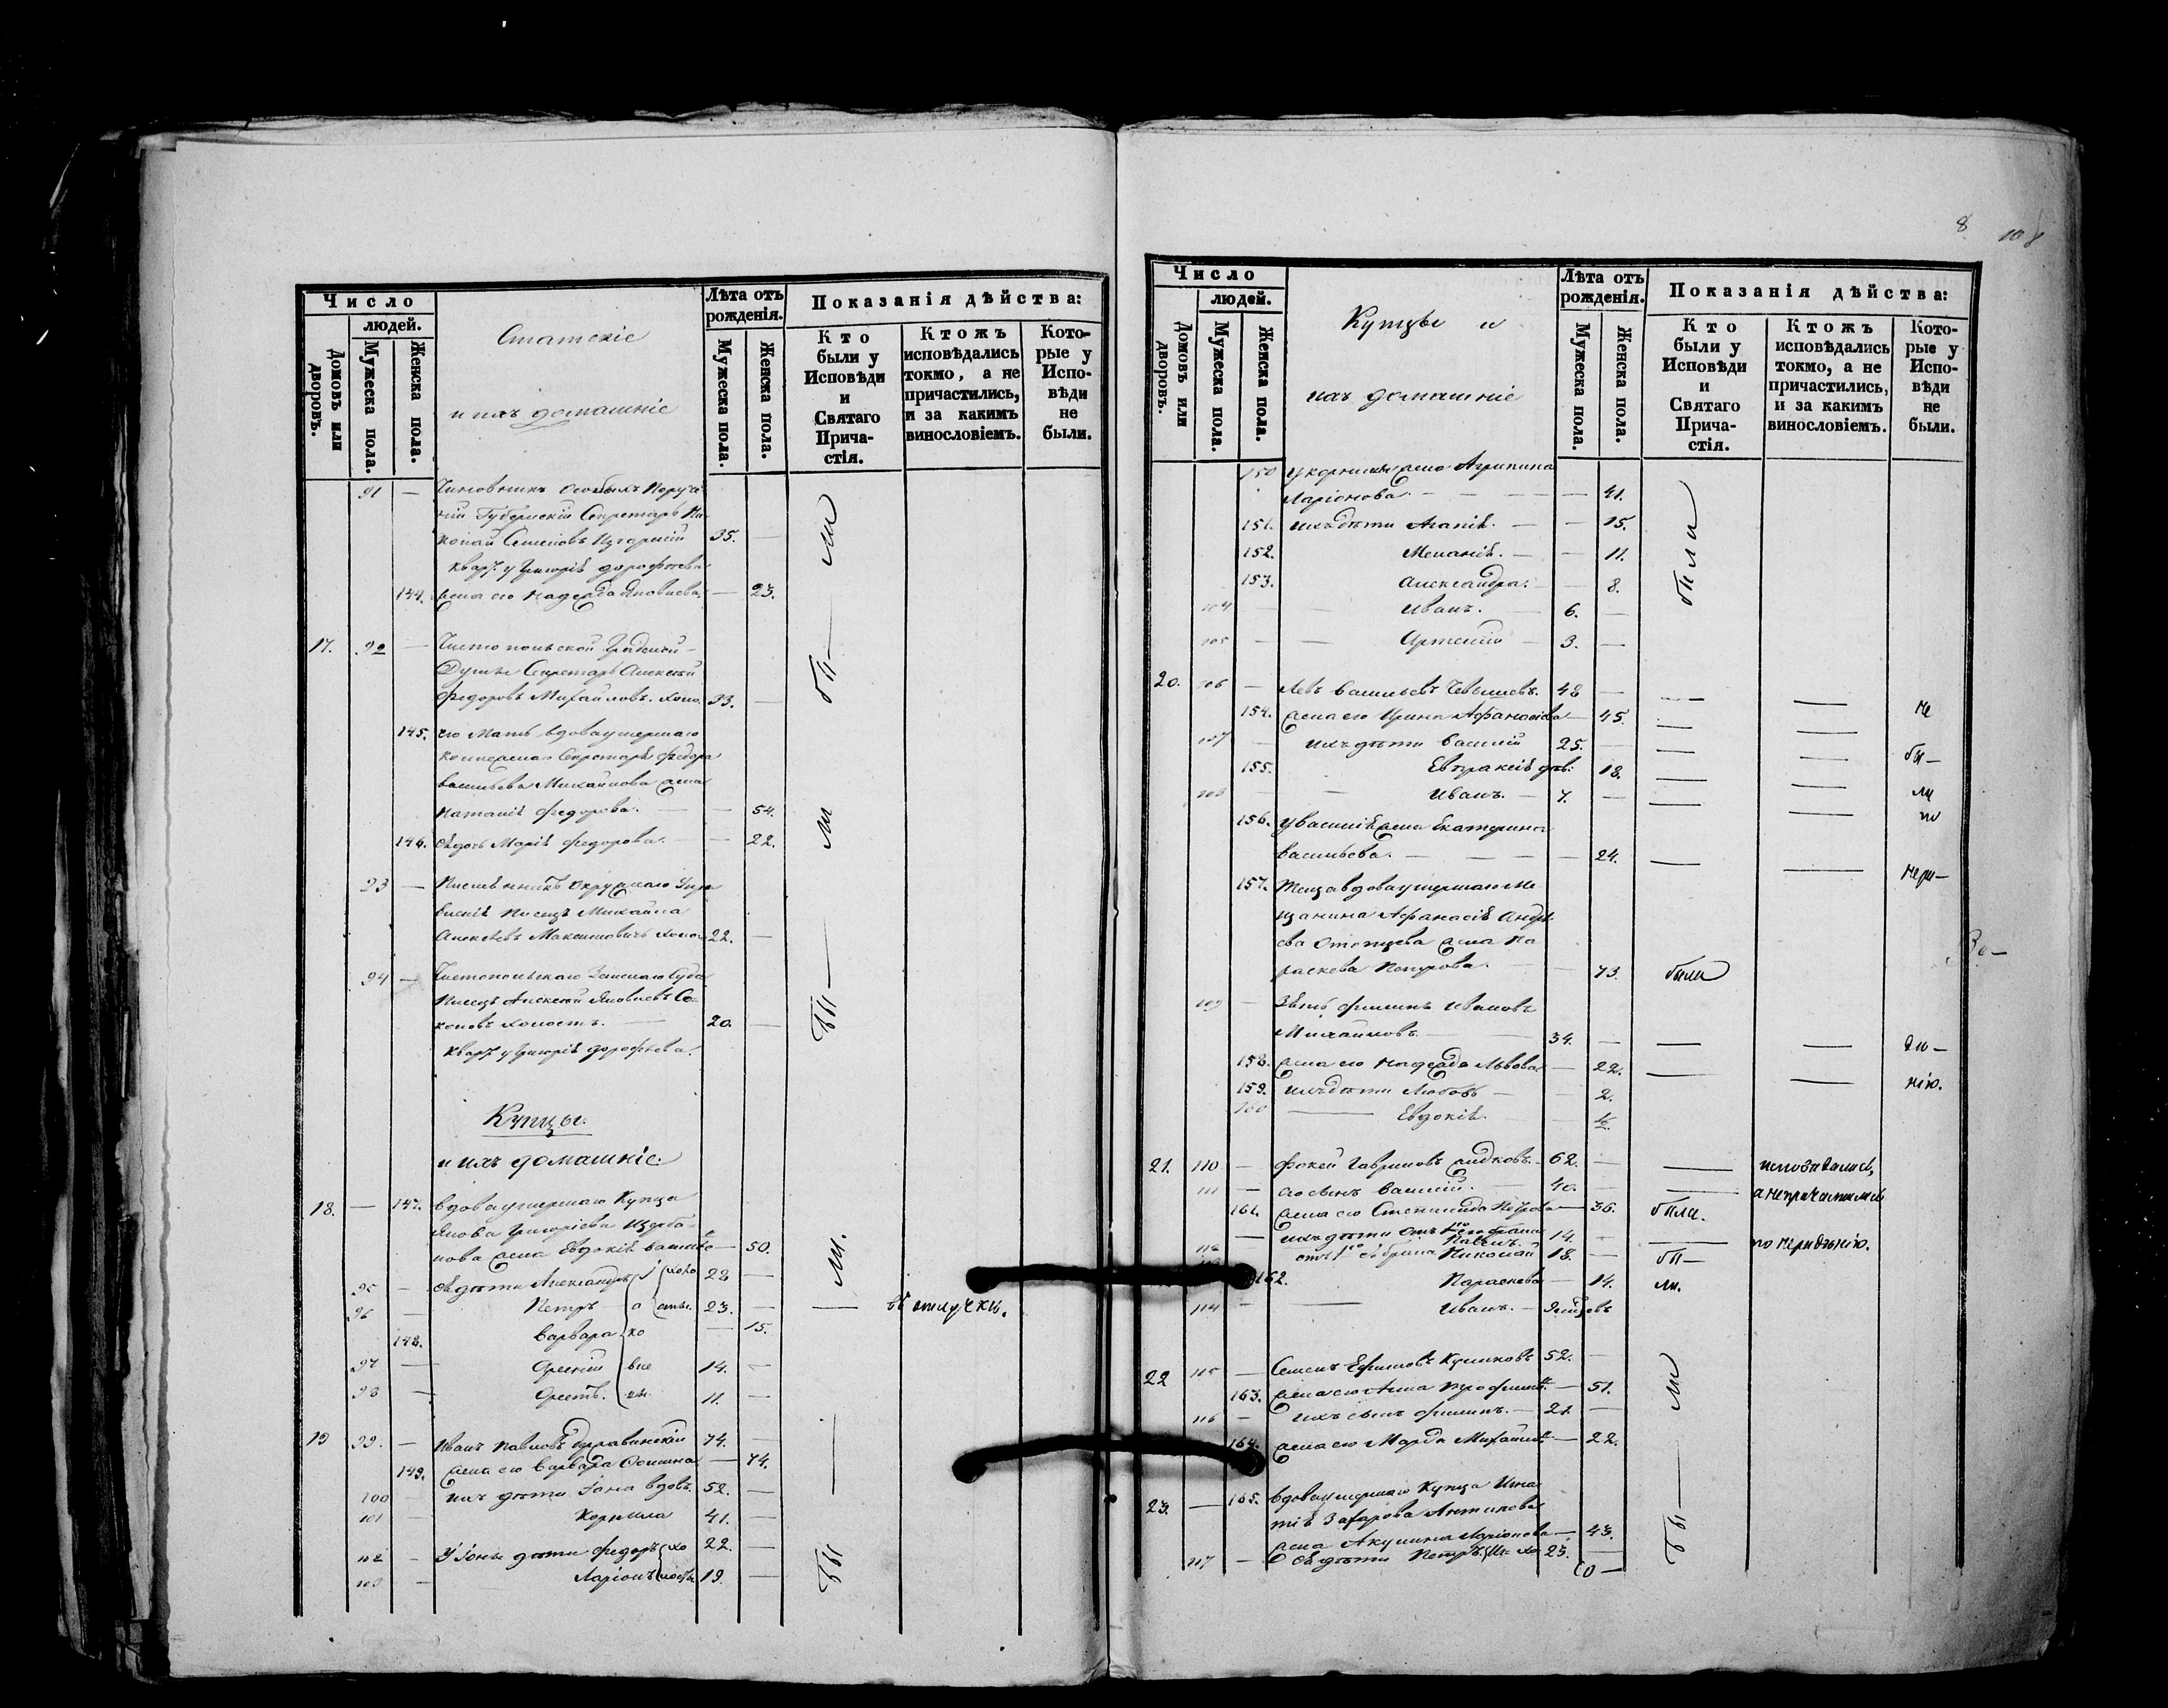 Число
людей.
Домовъ или дворовъ.
Мужеска пола.
Женска пола.
Статскіе
и ихъ домашніе
Лѣта отъ рожденія.
Мужеска пола.
Женска пола.
Показанія дѣйства:
Кто были у Исповѣди и Святаго Прича-стія.
Ктожъ исповѣдались токмо, а не причастились, и за какимъ винословіемъ.
Кото-рые у Испо-вѣди не были.
91 — Чиновникъ Особыхъ Поруче
ній Губернскій Секретарь Ни
колай Семеновъ 35. —
кварт. у Григорія Дорофѣева
144. жена его Надежда Яковлева. — 23.
17. 92 — Чистопольской Градской
Думы Секретарь Алексѣй
Федоровъ Михайловъ. холо. 33. —
145. его Мать вдова умершаго
Коллежскаго Секретаря Федора
Васильева Михайлова жена
Наталія Федорова. — — 54.
146. ея дочь Марія Федорова. — — 22.
93 —
Писецъ Михайла
Алексѣевъ Максимовичь холос 22. —
94 — Чистопольскаго Земскаго Суда
Писецъ Алексѣй Яковлевъ Со-
коловъ холостъ. — 20. —
кварт. у Григорія Дорофѣева.
бы — ли
Бы — ли
Купцы.
и ихъ домашніе.
18. — 147. Вдова умершаго Купца
Якова Григорьева
нова жена Евдокія Василье — 50.
95 — ея дѣти Александръ 28 —
96 Петръ 23. — — въ отлучкѣ.
148. Варвара — 15.
97 — 14. —
98 — 11. —
19 99. — Иванъ Павловъ 74. —
149. жена его Варвара Осипова — 74.
100 ихъ дѣти Іона вдовъ. 52. —
101 — Корнила 41. —
102 — У Іоны дѣти Федоръ хо 22. —
103 — Ларіонъ лосты 19. —
Бы — ли.
8
108
Число
людей.
Домовъ или дворовъ.
Мужеска пола.
Женска пола.
Купцы и
ихъ домашніе
Лѣта отъ рожденія.
Мужеска пола.
Женска пола.
Показанія дѣйства:
Кто были у Исповѣди и Святаго Прича-стія.
Ктожъ исповѣдались токмо, а не причастились, и за какимъ винословіемъ.
Кото-рые у Испо-вѣди не были.
150 У Корнилы жена Агрипина
Ларіонова. — — — — 41.
151. ихъ дѣти Агапія. — — 15.
152. Меланія. — — 11.
153. Александра. — — 8.
104 — — Иванъ. — 6. —
105 — — Артемій — 3. —
были
20. 106 — Левъ Васильевъ 48 — — — не
154. жена его Ирина Афанасьева — 45. — —
107 — ихъ дѣти Василій 25. — — — бы —
155. Евпраксія дѣв: 18. — — ли
108 — — Иванъ. — 7. — — — по
156. У Василія жена Екатерина
Васильева. — — — — 24. — — нера —
157. Теща вдова умершаго Ме
щанина Афанасія Андре
ева жена Па
раскева Петрова. — — 73. была
109 — Зять Филипъ Ивановъ
Михайловъ. — 34. — — — дѣ —
158. жена его Надежда Львова — 22. — — нію.
159. ихъ дѣти Любовь — — 2.
160 — Евдокія. — ½.
21. 110 — Фокей Гавриловъ 62. — — исповѣдались,
111 — его сынъ Василій. — 40. — — а непричастились
161. жена его Степанида Петрова — 36. была.
112 — ихъ дѣти Павелъ. — 14. — — по нерадѣнію.
отъ 1го брака Николай 18. — бы —
162. Параскева — 14. ли.
114 — — Иванъ. —
22 115 — Семенъ Ефимовъ Куликовъ 52. —
163. жена его Анна — 51.
116 — ихъ сынъ Филипъ. — 21. —
164. жена его Марѳа Михайлов — 22.
23. — 165. Вдова умершаго Купца Игна
тія Захарова Антипова
жена Акулина Ларіонова — 43.
117 — ея дѣти Петръ. хо 23. —
Бы — ли